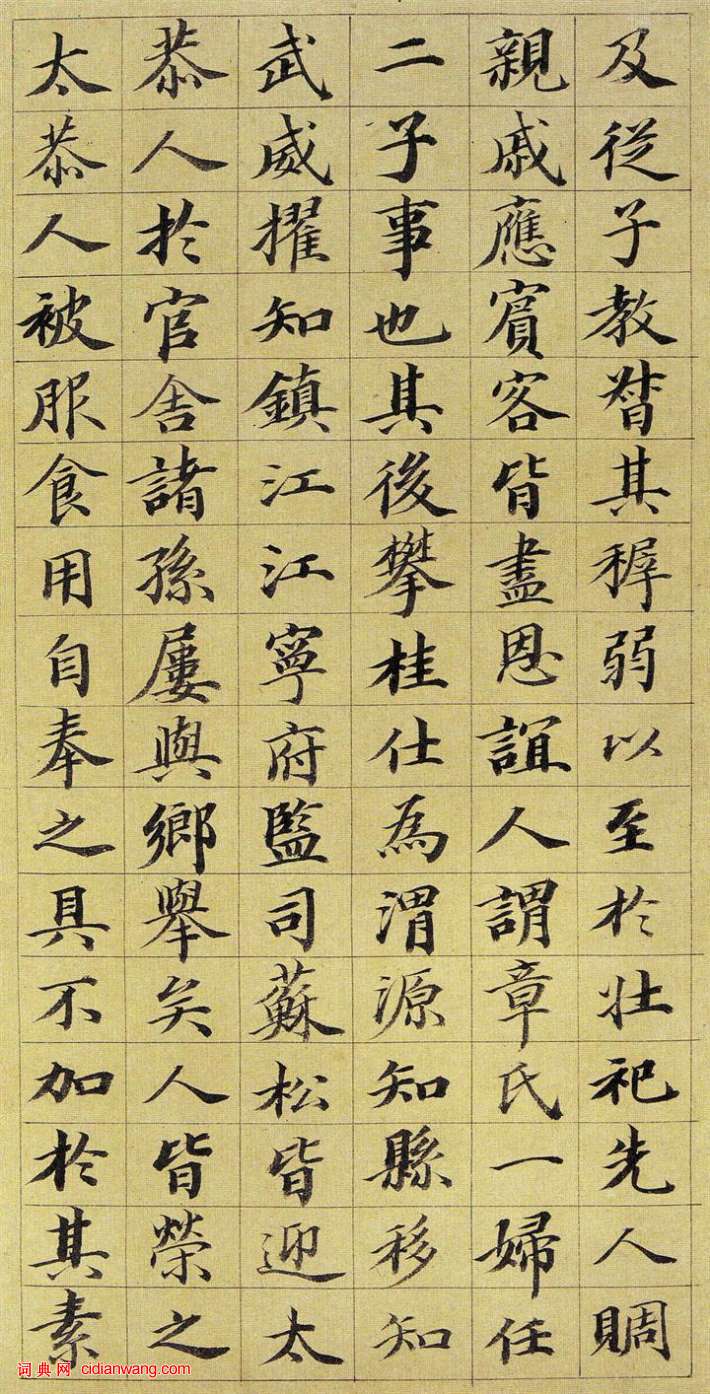 及從子教督其稺弱以至於壯祀先人賙
親戚應賓客皆盡恩誼人謂章氏一婦任
二子事也其後攀桂仕為渭源知縣移知
武威擢知鎮江江寧府監司蘇松皆迎太
恭人於官舍諸孫屢與鄉舉矣人皆榮之
太恭人被服食用自奉之具不加於其素
词典网 cidianwang.com